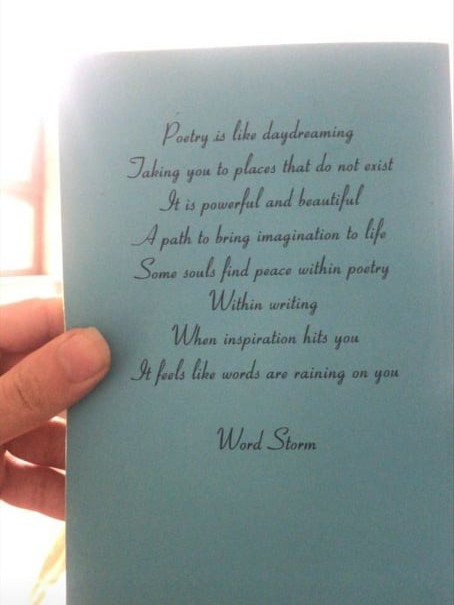 Poetry is like daydreaming
Taking you to places that do not exist
It is powerful and beautiful
A path to bring imagination to life
Some souls find peace within poetry
Within writing
When inspiration hits you
It feels like words are raining on you
Word Storm